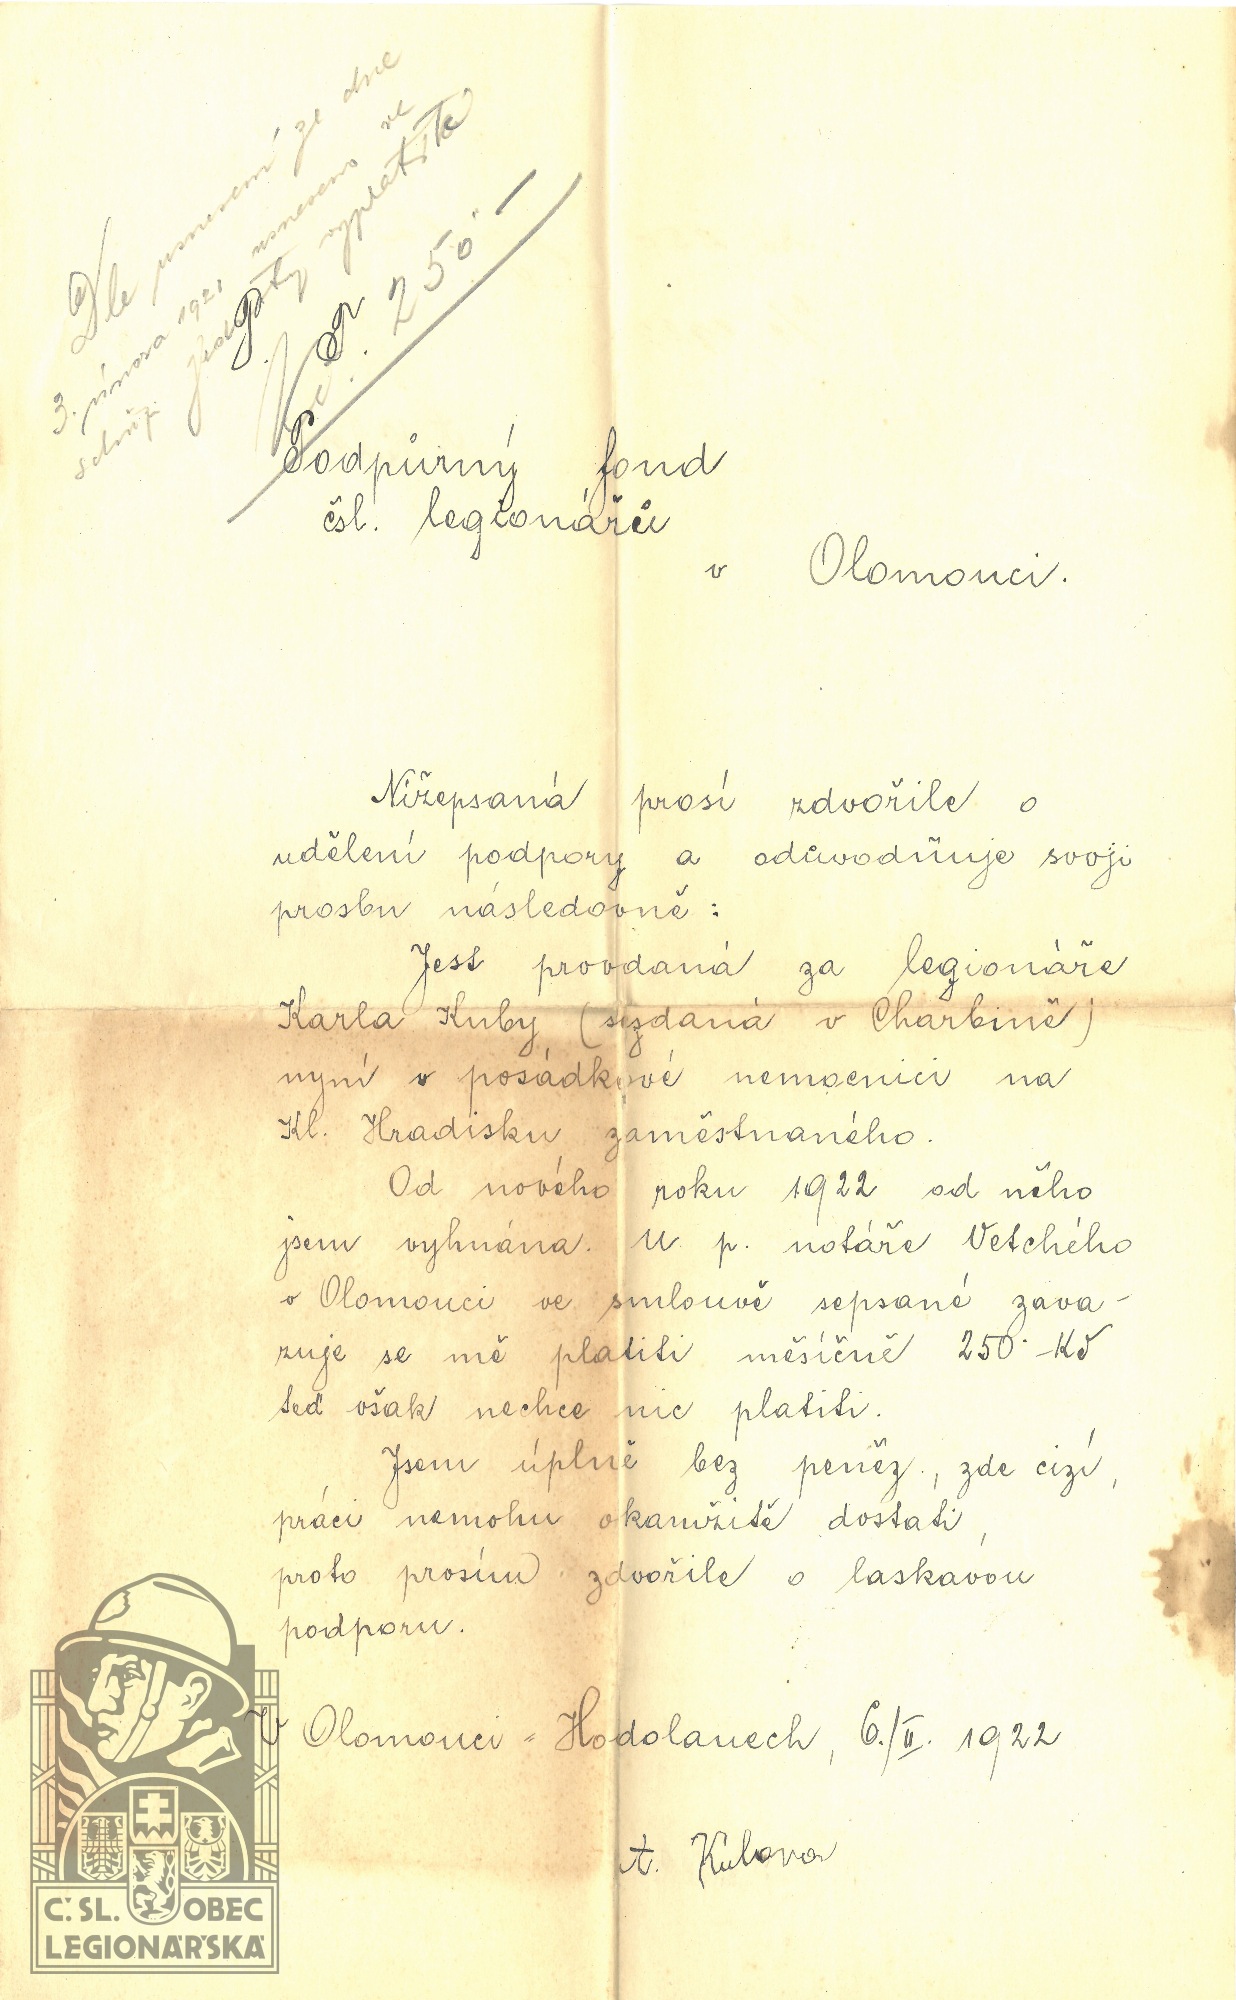 Dle usnesení ze dne
3. února 1921 usneseno ve
schůz. jednoty vyplatiti
Kč 250 –
P. P.
Podpůrný fond
čsl. legionářů
v Olomouci.
Nížepsaná prosí zdvořile o
udělení podpory a odůvodňuje svoji
prosbu následovně :
Jest provdaná za legionáře
Karla Kuby (sezdaná v Charbině)
nyní v posádkové nemocnici na
Kl. Hradisku zaměstnaného.
Od nového roku 1922 od něho
jsem vyhnána. U p. notáře Vetchého
v Olomouci ve smlouvě sepsané zava-
zuje se mě platiti měsíčně 250·–Kč
teď však nechce nic platiti.
Jsem úplně bez peněz., zde cizí,
práci nemohu okamžitě dostati,
proto prosím zdvořile o laskavou
podporu.
V Olomouci - Hodolanech, 6./II. 1922
A. Kubova
Č. SL. OBEC
LEGIONÁŘSKÁ